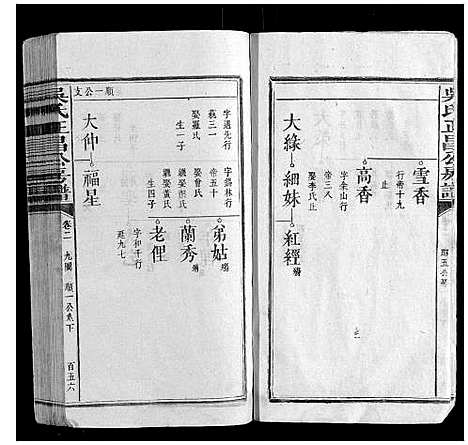 吳氏正昌公房譜
雪香
行帝十九
止
高香
字金山行
帝三八
娶李氏止
大綠
細妹
紅經
續
吳氏正昌公房譜
卷二
九園
順一公系下
百五六
順一公支
大仲
福星
字選先行
萩三一
娶羅氏
生一子
弟姑
字錫林行
帝五十
娶曾氏
繼娶彭氏
繼娶黃氏
生四子
蘭秀
老俚
字和千行
廷九七